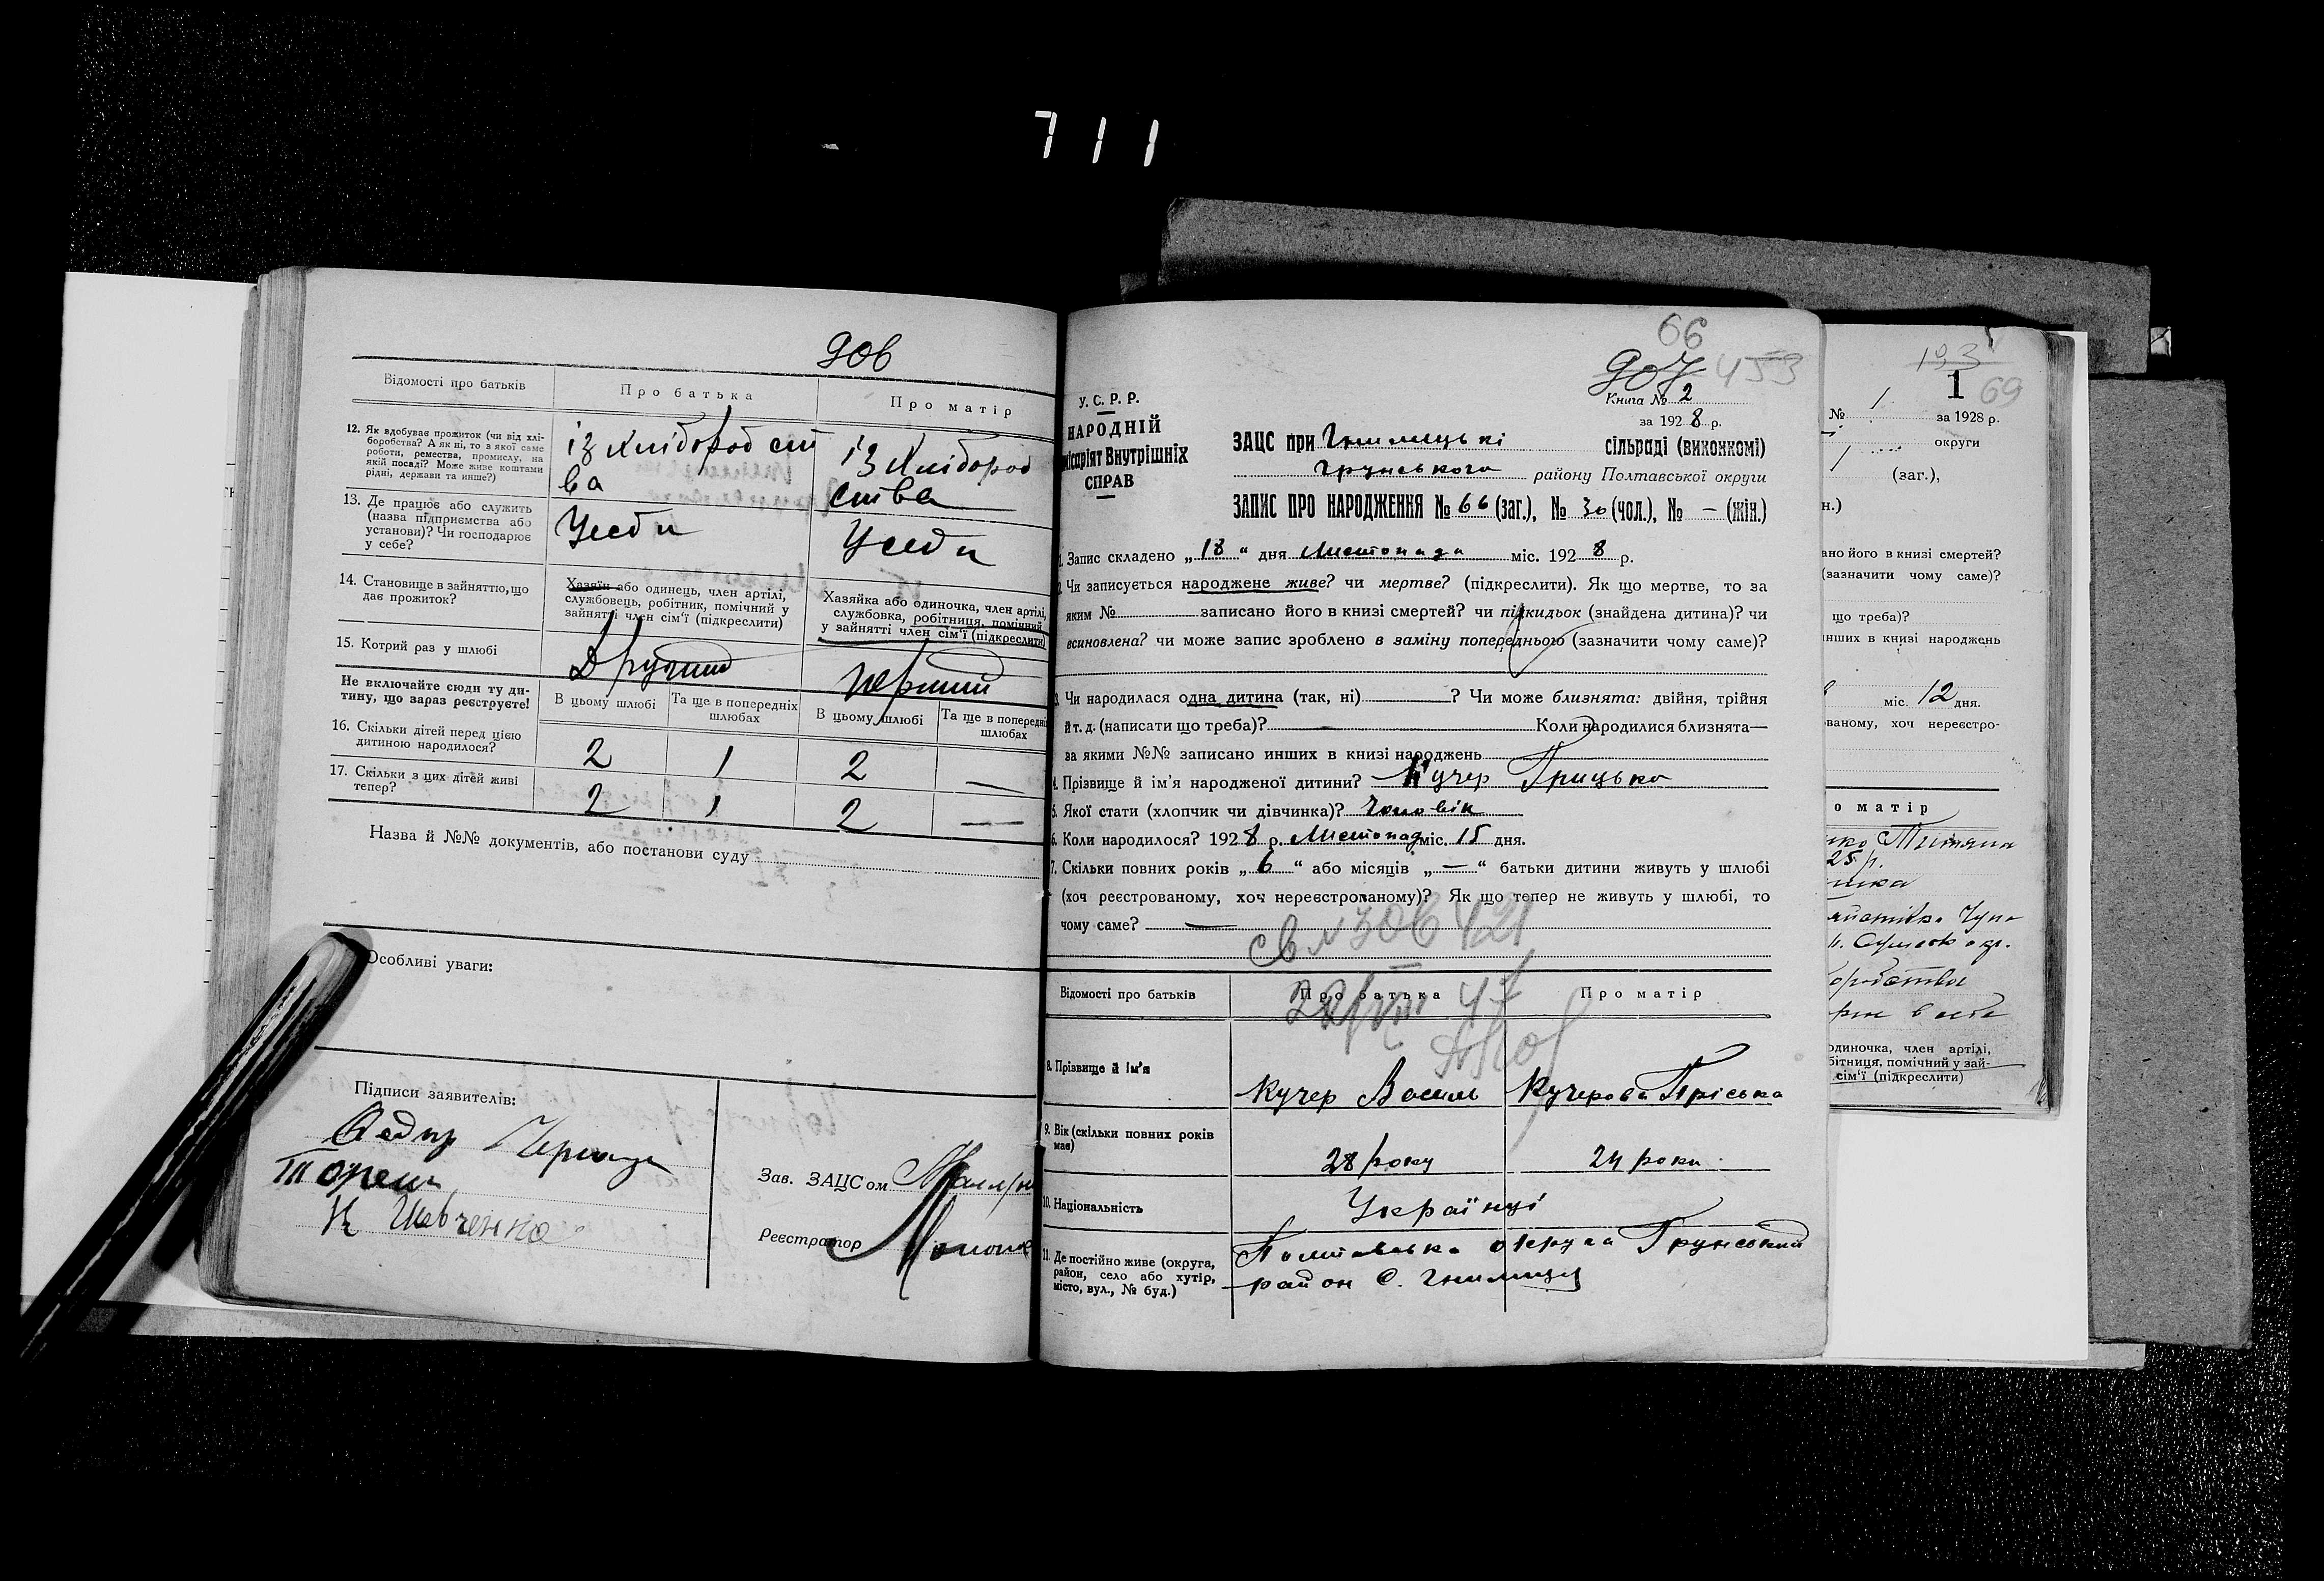 711
906
Відомості про батьків
Про батька
Про матір
12. Як вдобуває прожиток (чи від хлі-
боробства? А як ні, то з якої саме
роботи, ремества, промислу, на
якій посаді? Може живе коштами
рідні, держави та инше?)
із хлібород ст
ва
із Хлібород
ства
13. Де працює або служить
(назва підприємства або
установи)? Чи господарює
у себе?
Усеби
Усеби
14. Становище в зайняттю, що
дає прожиток?
Хазяїн або одинець, член артілі,
службовець, робітник, помічний у
зайнятті член сім'ї (підкреслити)
Хазяйка або одиночка, член артілі,
службовка, робітниця, помічний
у зайнятті член сім'ї (підкреслити)
15. Котрий раз у шлюбі
Другий
перший
Не включайте сюди ту ди-
тину, що зараз реєструєте!
В цьому шлюбі
Та ще в попередніх
шлюбах
В цьому шлюбі
Та ще в попередніх
шлюбах
16. Скільки дітей перед цією
дитиною народилося?
2 1 2 —
17. Скільки з цих дітей живі
тепер?
2 1 2 —
Назва й №№ документів, або постанови суду
Особливі уваги:
Підписи заявителів:
Федір
К Шевченко
Зав. ЗАЦСом
Реєстратор
66
907 453
Книга № 2
за 1928 р.
У.С.Р.Р.
НАРОДНІЙ
місаріят Внутрішніх
СПРАВ
ЗАЦС при Гнилицькі сільраді (виконкомі)
Грунського району Полтавської округи
ЗАПИС ПРО НАРОДЖЕННЯ № 66 (заг.), № 30 (чол.), № — (жін.)
1. Запис складено „18“ дня Листопада міс. 1928 р.
2. Чи записується народжене живе? чи мертве? (підкреслити). Як що мертве, то за
яким № записано його в книзі смертей? чи підкидьок (знайдена дитина)? чи
всиновлена? чи може запис зроблено в заміну попереднього (зазначити чому саме)?
3. Чи народилася одна дитина (так, ні) ? Чи може близнята: двійня, трійня
й т. д. (написати що треба)? — Коли народилися близнята—
за якими №№ записано инших в книзі народжень
4. Прізвище й ім'я народженої дитини? Кучер Грицько
5. Якої стати (хлопчик чи дівчинка)? Чоловік
6. Коли народилося? 1928 р. Листопад міс. 15 дня.
7. Скільки повних років „6“ або місяців „—“ батьки дитини живуть у шлюбі
(хоч реєстрованому, хоч нереєстрованому)? Як що тепер не живуть у шлюбі, то
чому саме? —
Відомості про батьків
Про батька
Про матір
8. Прізвище й ім'я
Кучер Василь
Кучерова Пріська
9. Вік (скільки повних років
має)
28 року
24 роки
10. Національність
Українці
11. Де постійно живе (округа,
район, село або хутір,
місто, вул., № буд.)
Полтавська округа Грунський
район С. Гнилиця
193
1
69
№ 1 за 1928 р.
округи
1 (заг.),
н.)
ано його в книзі смертей?
(зазначити чому саме)?
що треба)?
инших в книзі народжень
міс. 12 дня.
ованому, хоч нереєстро-
о матір
нко Титяна
25 р.
одиночка, член артілі,
бітниця, помічний у зай-
сім'ї (підкреслити)